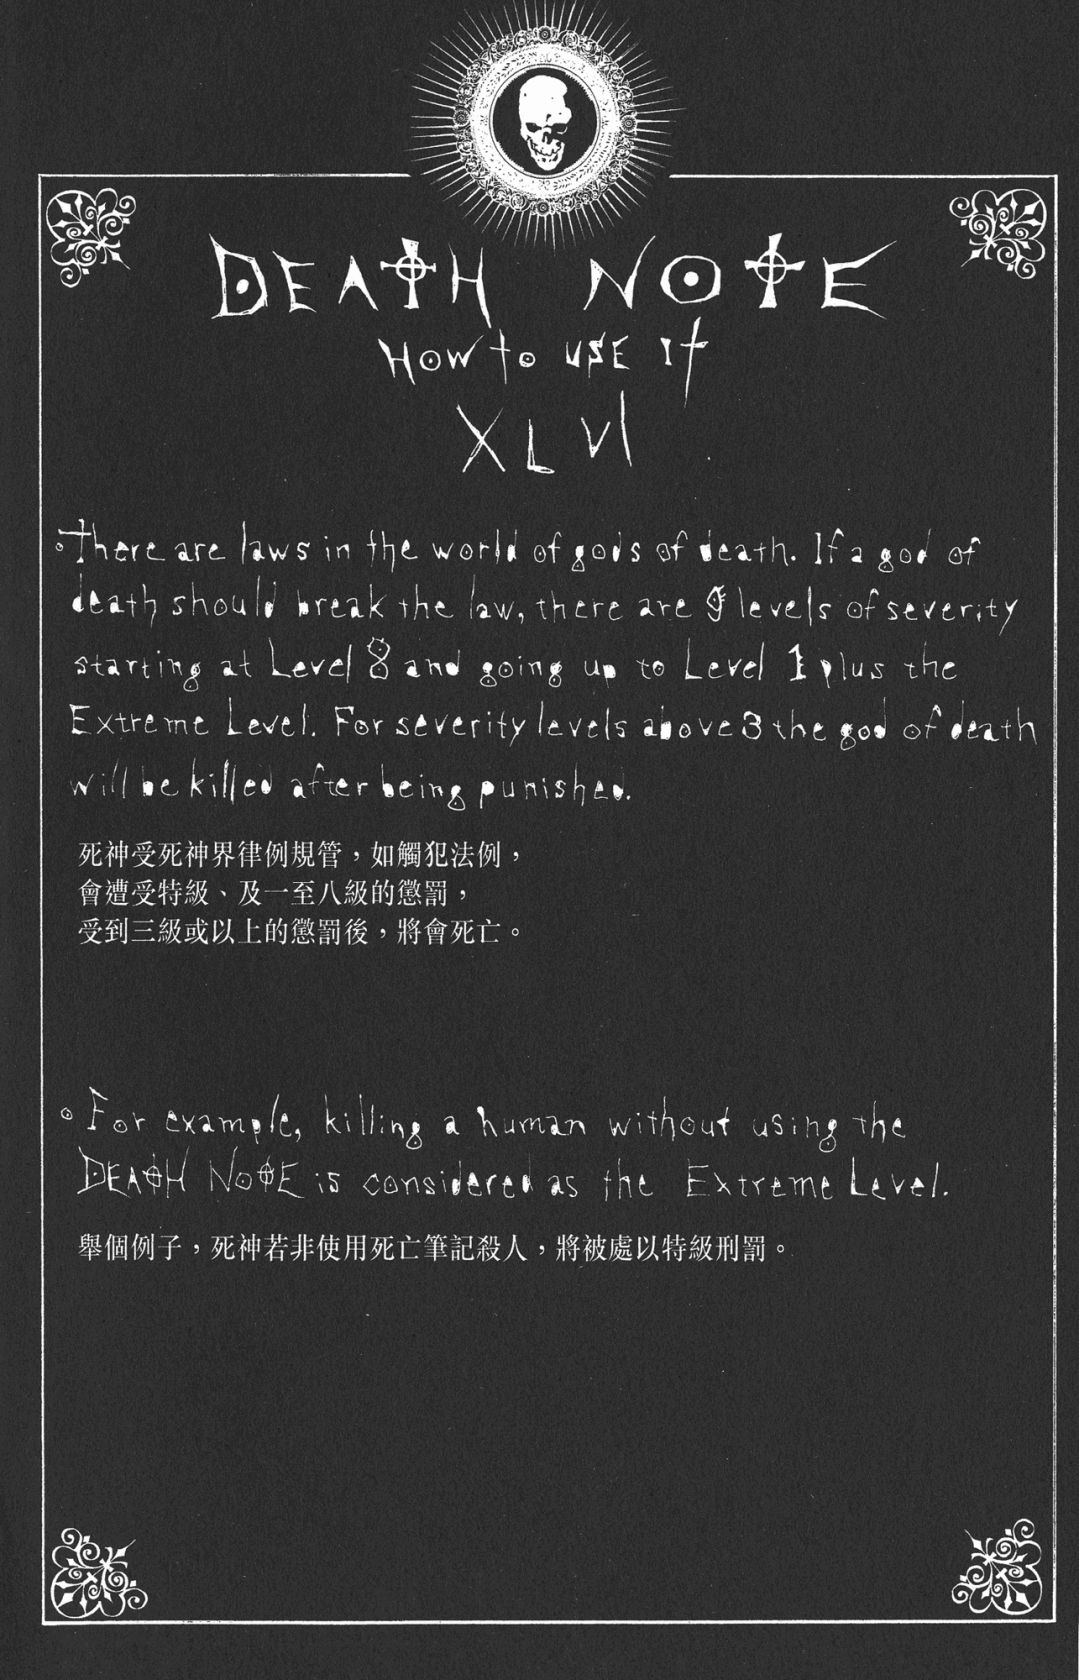 DEATH NOTE
HOW to USE It
XLVI
There are laws in the world of gods of death. If a god of
death should break the law, there are 9 levels of severity
starting at Level 8 and going up to Level 1 plus the
Extreme Level. For severity levels above 3 the god of death
will be killed after being punished.
死神受死神界律例規管，如觸犯法例，
會遭受特級、及一至八級的懲罰，
受到三級或以上的懲罰後，將會死亡。
For example, killing a human without using the
DEATH NOTE is considered as the Extreme Level.
舉個例子，死神若非使用死亡筆記殺人，將被處以特級刑罰。